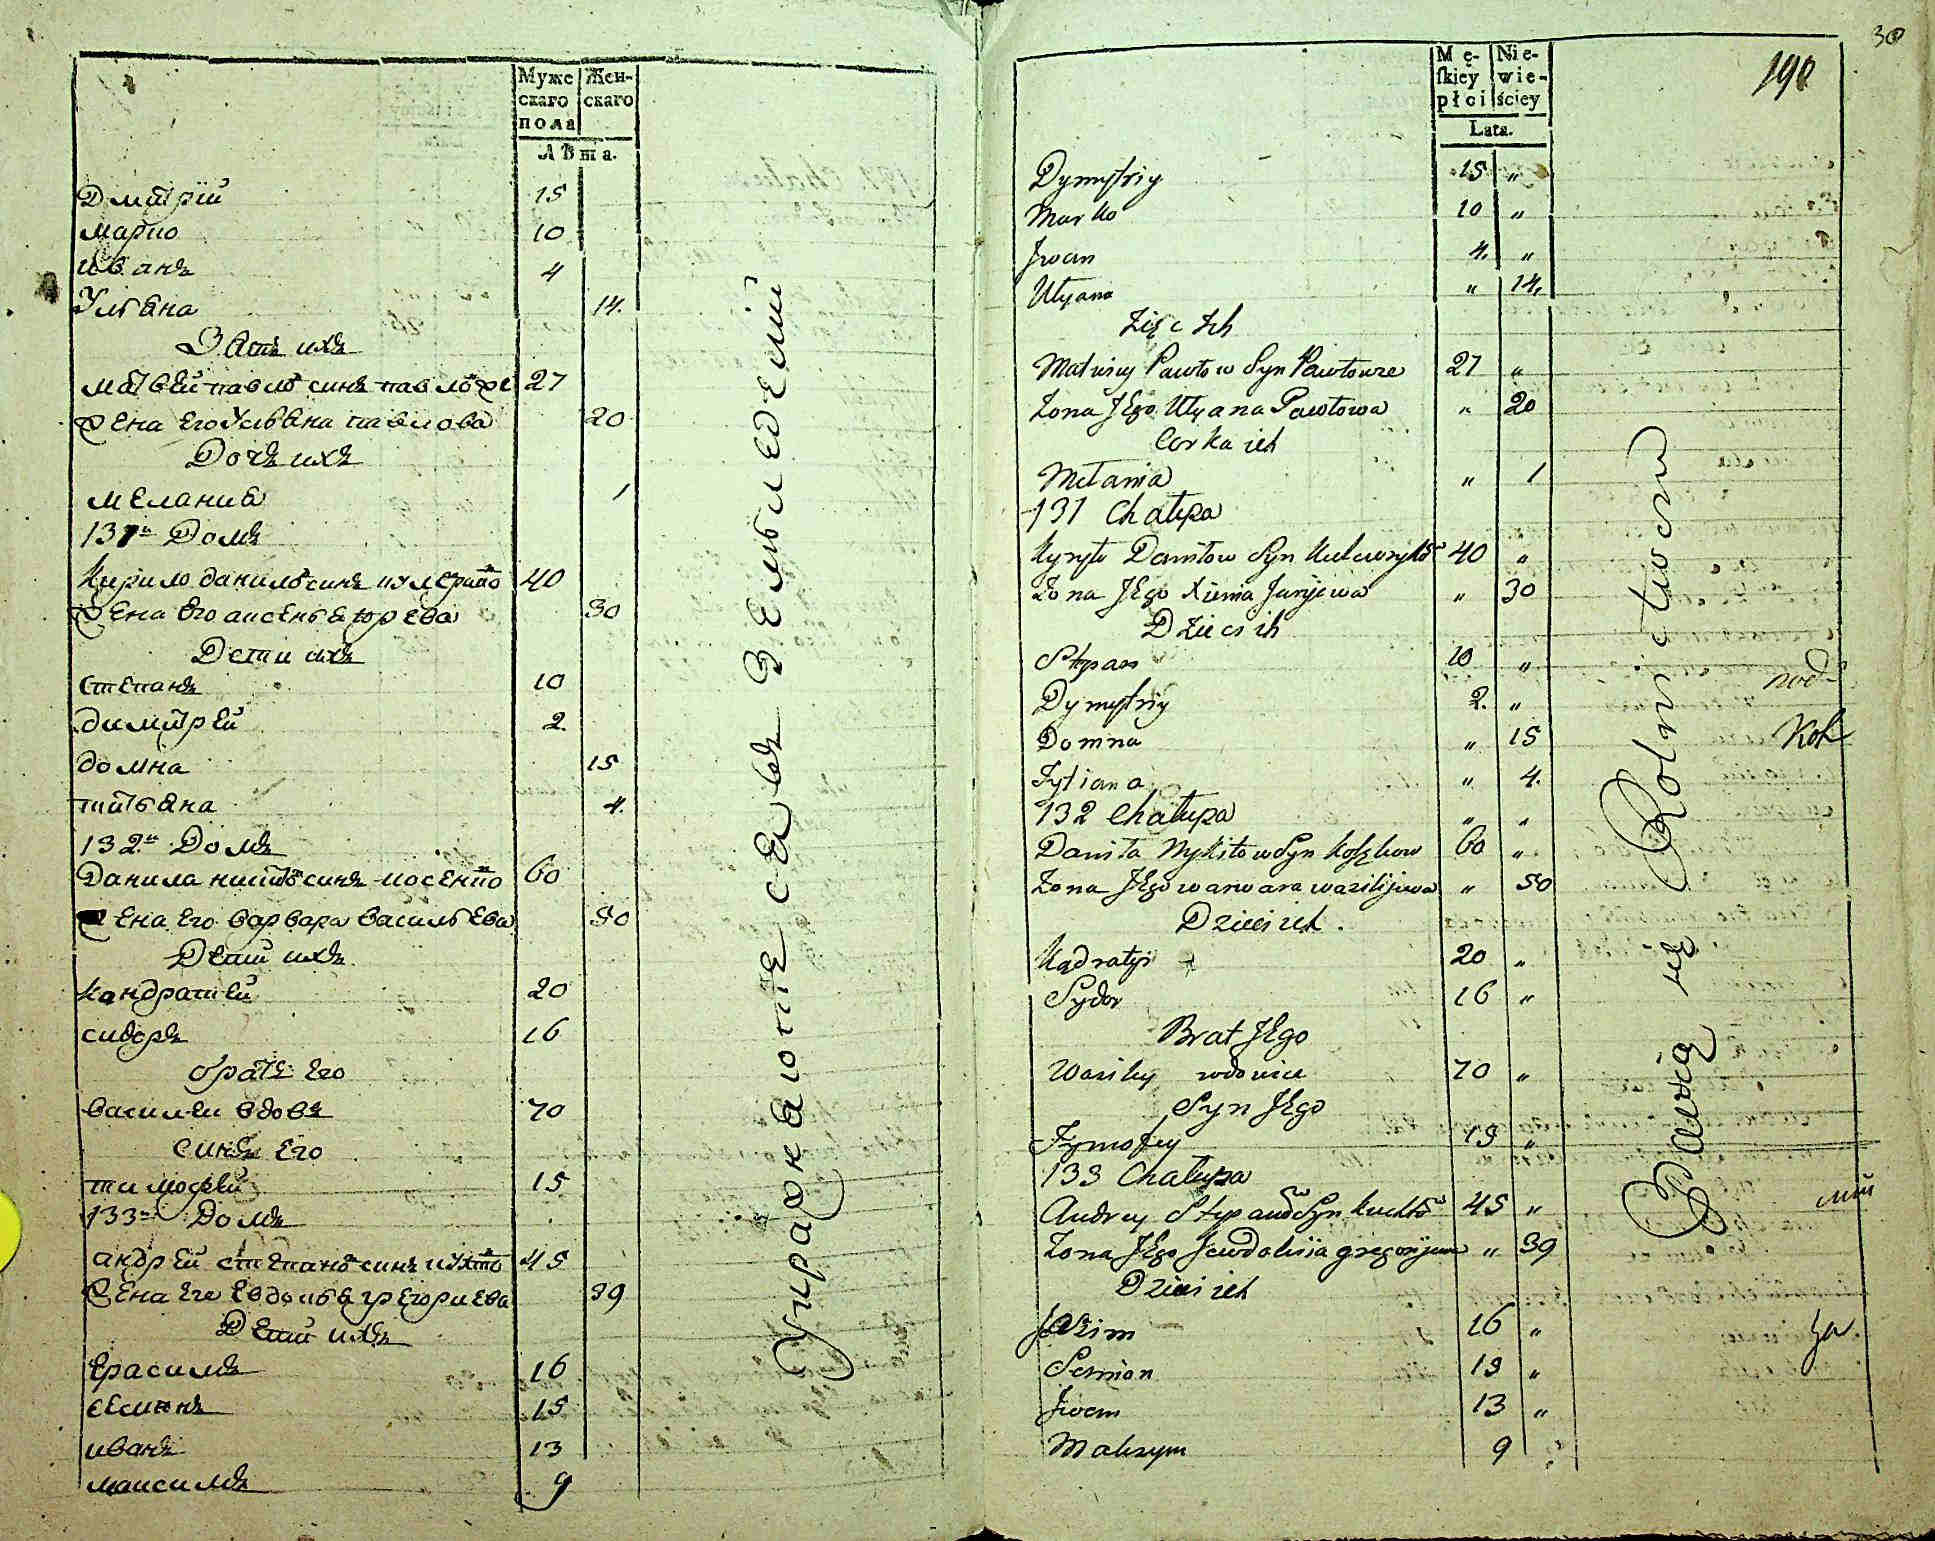 Муже Жен-
скаго скаго
пола
Лѣта.
Дмитрїй 15
марко 10
иванъ 4
Ульяна 14.
Зять ихъ
матвей павловъ синъ павлов 27
жена его Ульяна павлова 20
Дочъ ихъ
мелания 1
131й Домъ
Кирило данилов синъ 40
жена его аксенья юрева 30
Дети ихъ
степанъ 10
димитрей 2.
домна 15
титьяна 4.
132й Домъ
Данила никитов синъ косенко 60
жена его варвара васильева 50
Дети ихъ
кондратей 20
сидоръ 16
братъ его
василеи вдовъ 70
синъ его
тимофей 15
133й Домъ
андрей степановъ синъ 45
жена его евдокья грегориева 39
Дети ихъ
ерасимъ 16
семионъ 15
иванъ 13
максимъ 9
Упражняютце севъ Земьледелий
30
190
Mę- Nie-
skiey wie-
płci ściey
Lata.
Dymytriy 15 „
Marko 10 „
Jwan 4. „
Ulyana „ 14.
Zięć Ich
Matwiey Pawłow Syn Pawłowze 27 „
Zona Jego Ulyana Pawłowa „ 20
Corka ich
Mełania „ 1
131 Chałupa
Kyryło Daniłow Syn 40 „
Zona Jego Xienia Jurijewa „ 30
Dzieci ih
Stepan 10 „
Dymytriy 2. „
Domna „ 15
Tytiana „ 4.
132 Chałupa „ „
Daniła Mykitow Syn 60 „
Zona Jego warwara wazilijewa „ 50
Dzieci ich.
Kądratyi 20 „
Sydor 16 „
Brat Jego
Wasiley wdowiec 70 „
Syn Jego
Tymofey 15 „
133 Chałupa
Andrey Stepanow Syn 45 „
Zona Jego Jewdokiia gregorijewa „ 39
Dzieci ich
16 „
Semion 15 „
Jwan 13 „
Maksym 9 „
Bawią się Rolnictwem